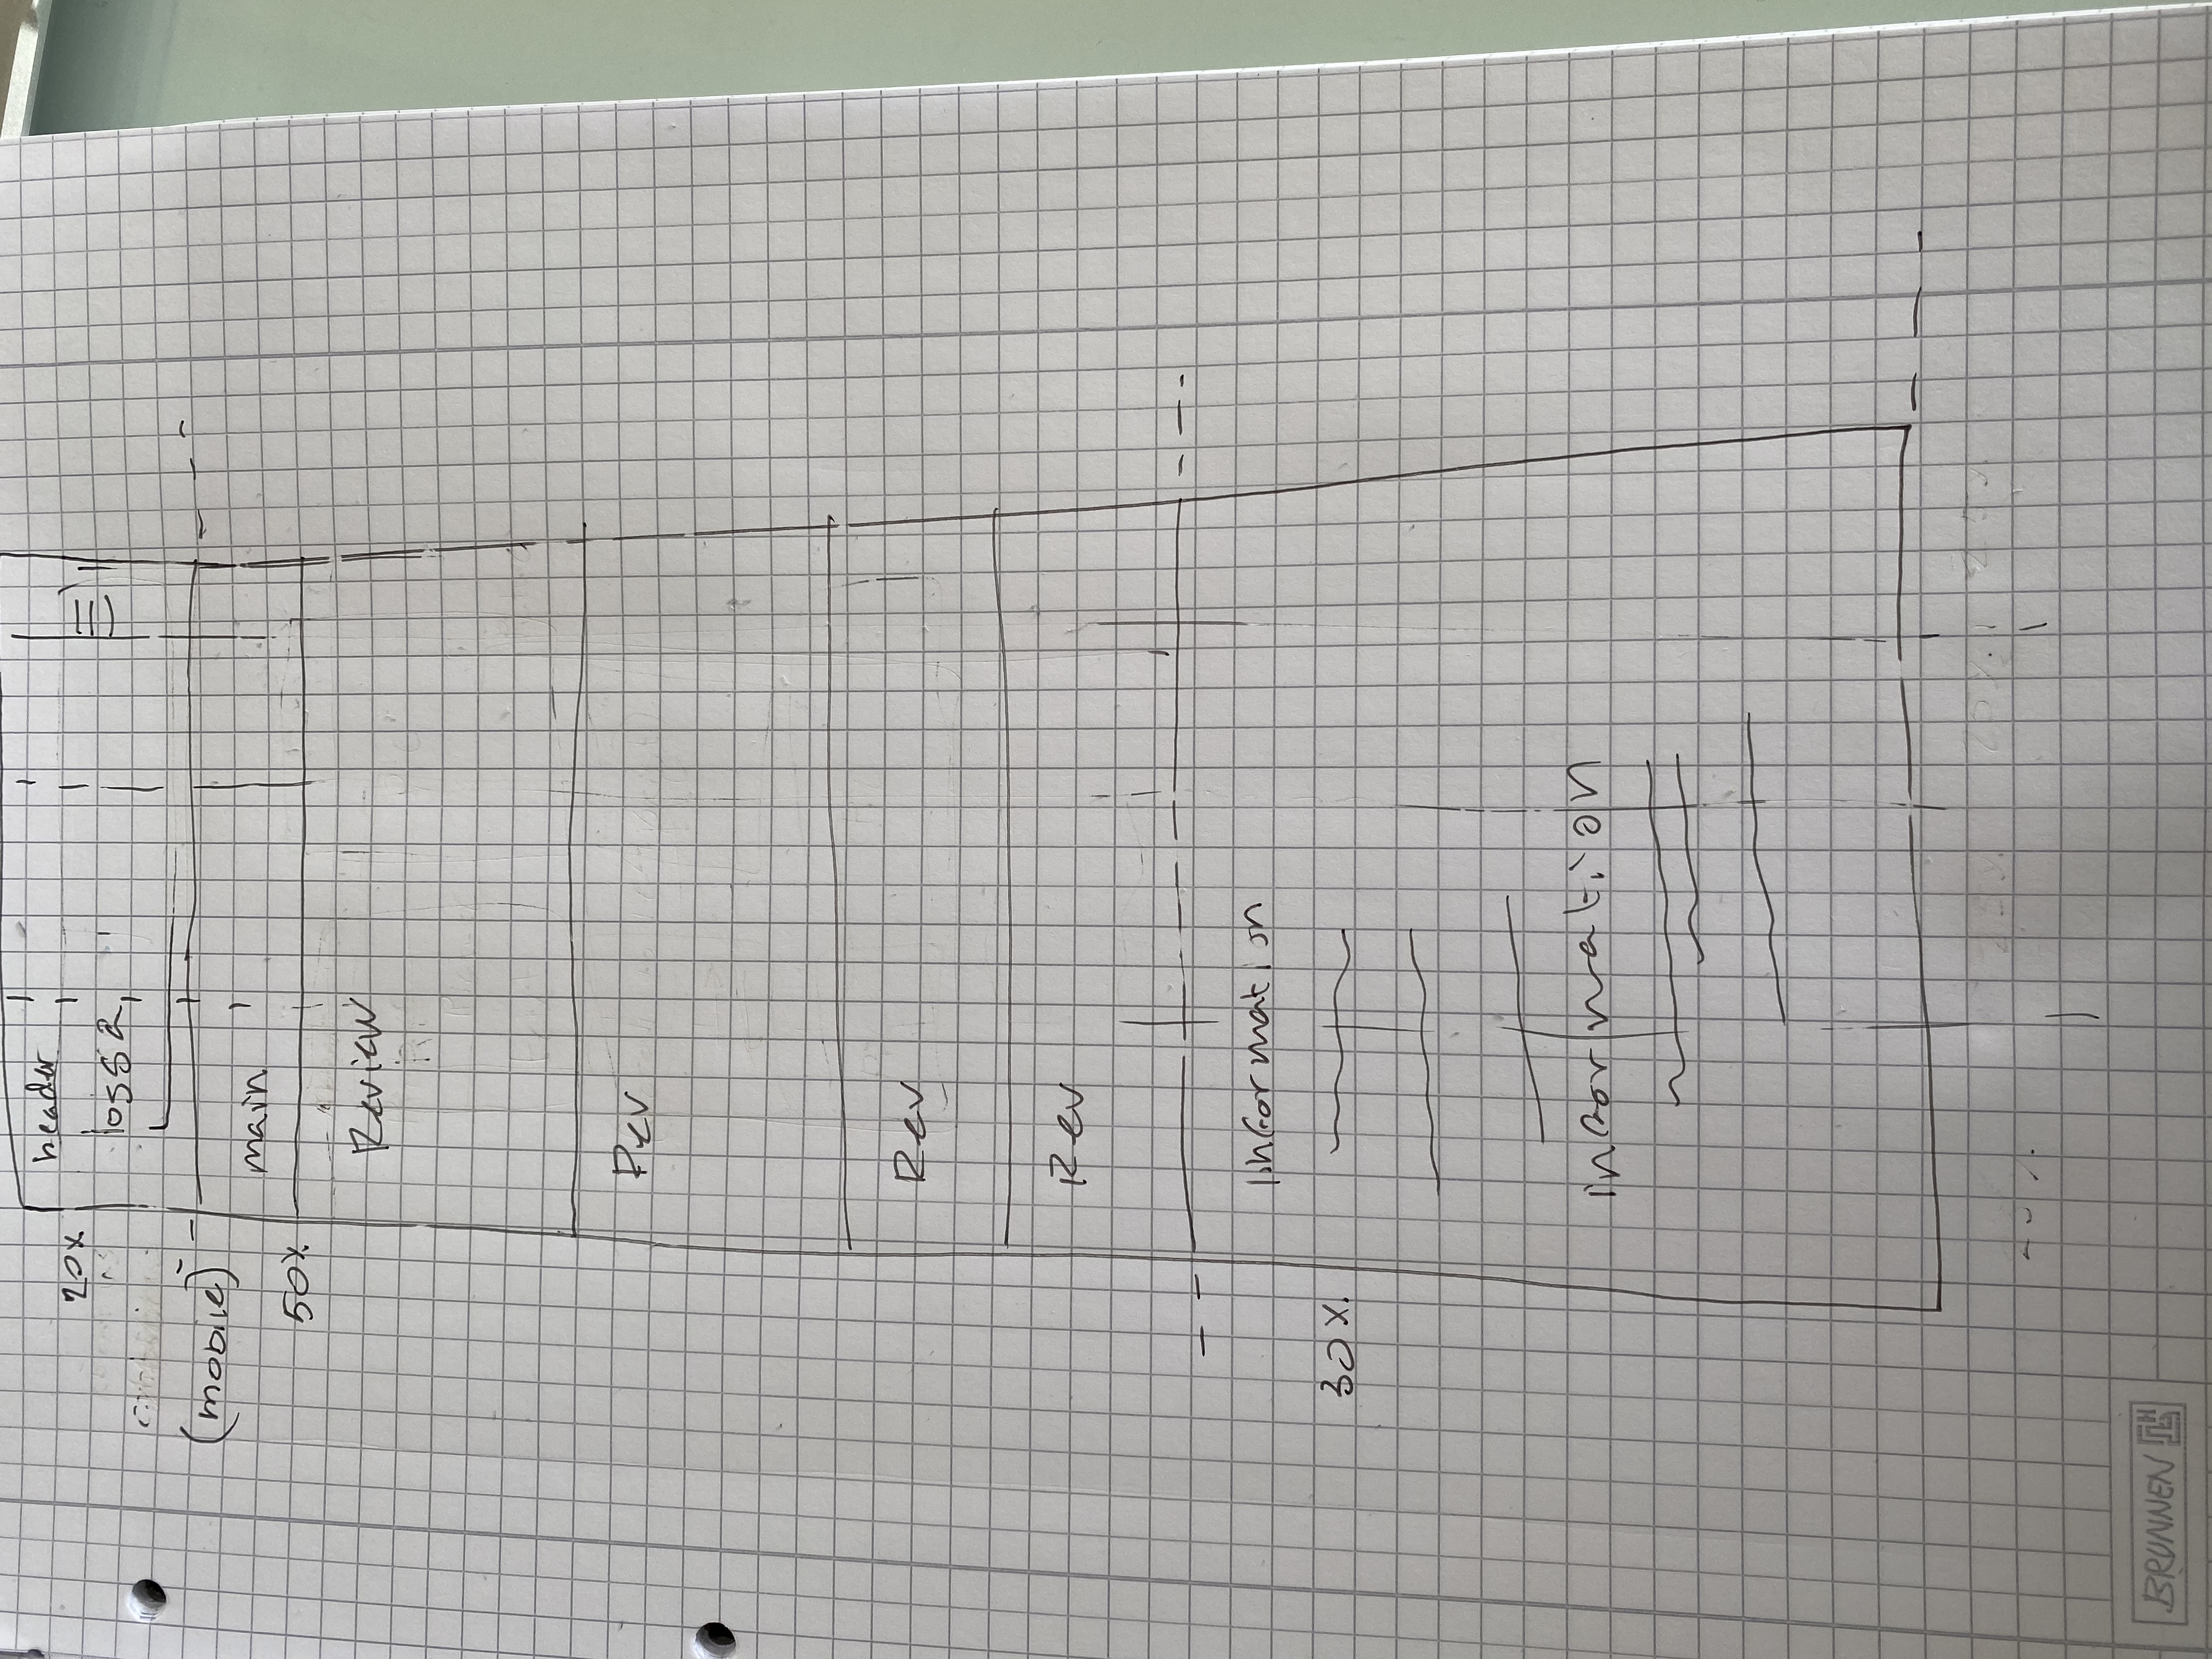 header
20%
loss2,
(mobile)
main
50%
Review
Rev
Rev
Rev
Information
30%
information
20%
25%
BRUNNEN